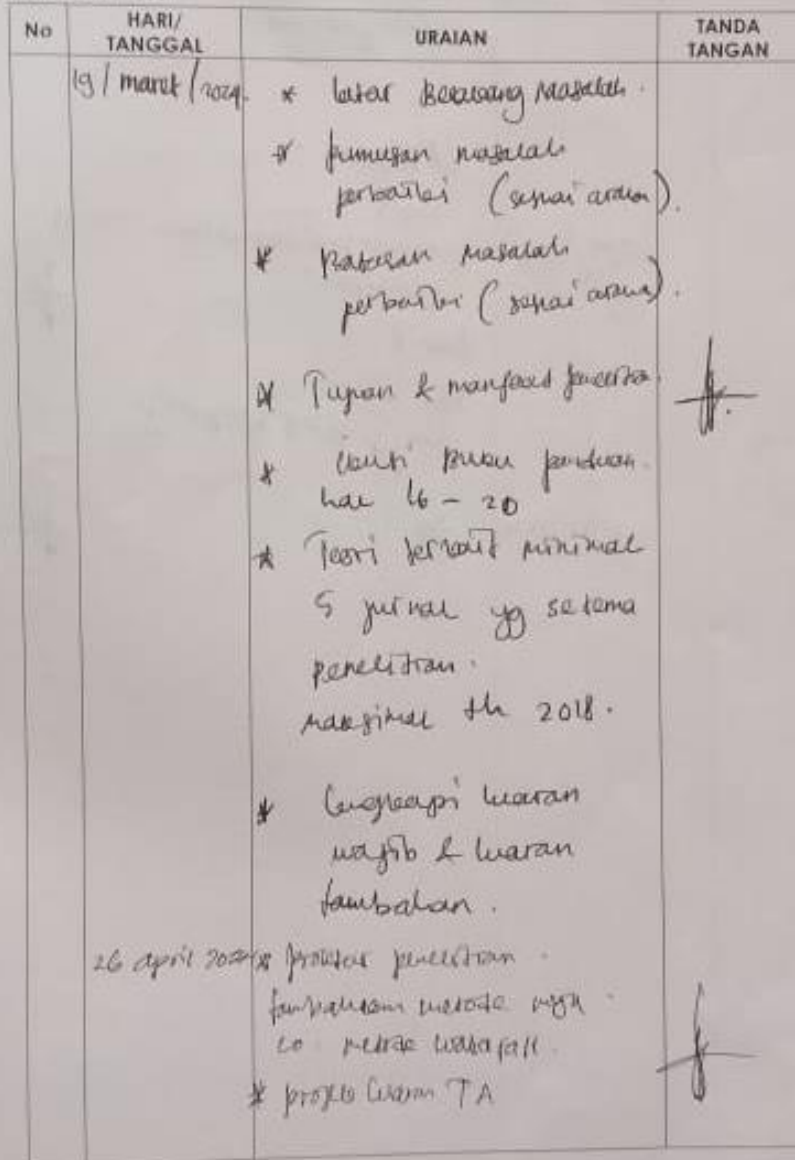 No
HARI/
TANGGAL
URAIAN
TANDA
TANGAN
19 / maret / 2024.
* latar Belakang Masalah.
* Rumusan masalah
perbaiki (sesuai arahan).
* Batasan Masalah
perbaiki (sesuai arahan).
* Tujuan & manfaat penelitian.
* Buku panduan.
hal 16 - 20
* Teori terkait minimal
5 jurnal yg setema
penelitian.
maksimal th 2018.
* lengkapi luaran
wajib & luaran
tambahan.
26 april 2024
* penelitian.
tambahkan metode
metode waterfall.
* luaran TA